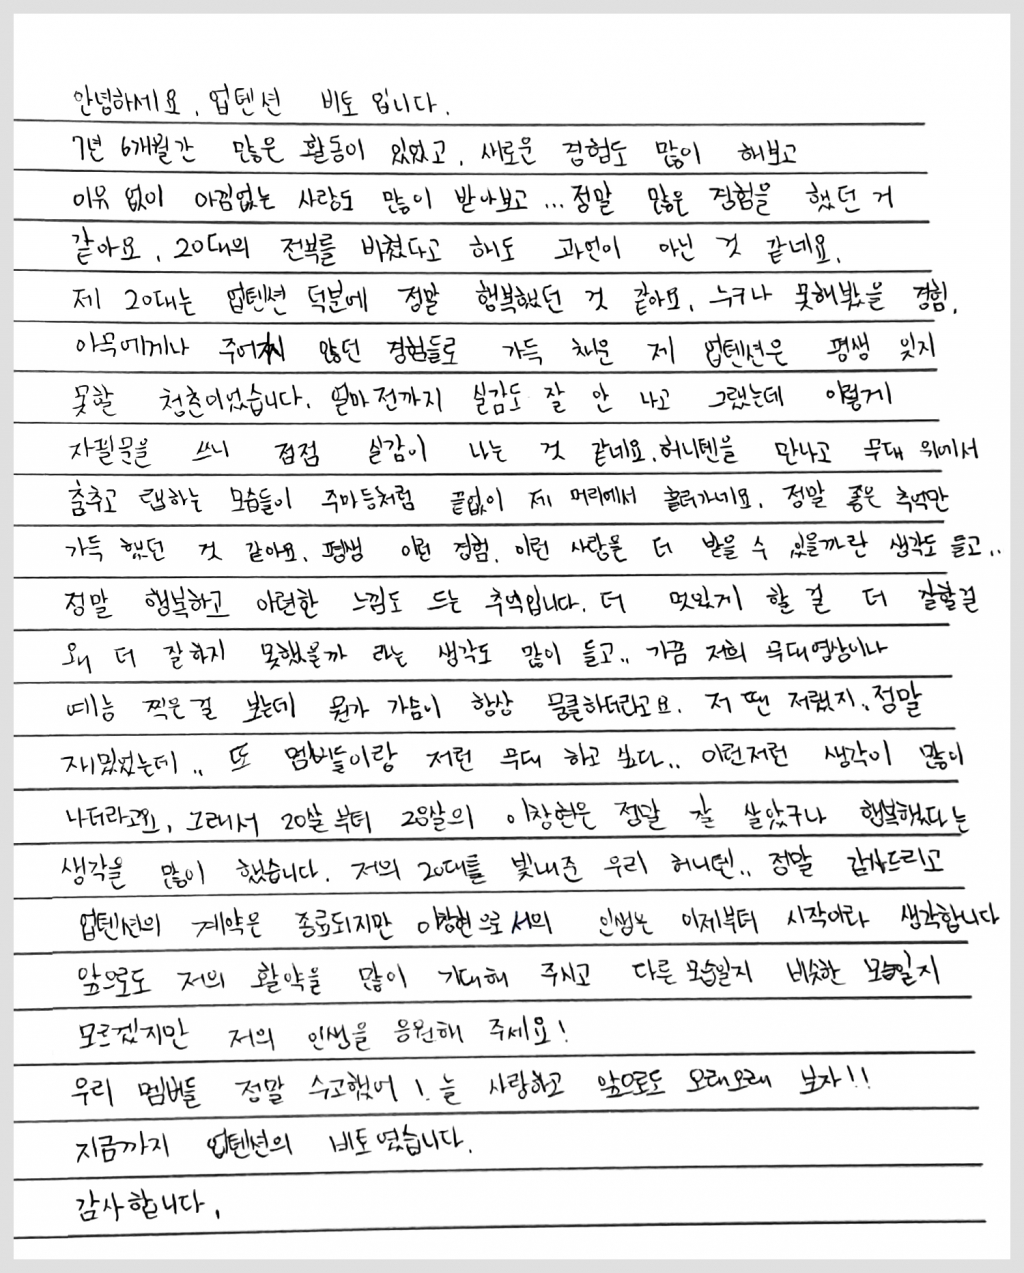 안녕하세요. 업텐션 비토 입니다.
7년 6개월간 많은 활동이 있었고, 새로운 경험도 많이 해보고
이유 없이 아낌없는 사랑도 많이 받아보고...정말 많은 경험을 했던 거
같아요. 20대의 전부를 바쳤다고 해도 과언이 아닌 것 같네요.
제 20대는 업텐션 덕분에 정말 행복했던 것 같아요. 누구나 못해봤을 경험,
아무에게나 주어지지 않던 경험들로 가득 채운 제 업텐션은 평생 잊지
못할 청춘이었습니다. 얼마전까지 실감도 잘 안 나고 그랬는데 이렇게
자필문을 쓰니 점점 실감이 나는 것 같네요. 허니텐을 만나고 무대 위에서
춤추고 랩하는 모습들이 주마등처럼 끝없이 제 머리에서 흘러가네요. 정말 좋은 추억만
가득 했던 것 같아요. 평생 이런 경험, 이런 사랑을 더 받을 수 있을까란 생각도 들고..
정말 행복하고 아련한 느낌도 드는 추억입니다. 더 멋있게 할 걸 더 잘할걸
왜 더 잘하지 못했을까 라는 생각도 많이 들고.. 가끔 저희 무대영상이나
예능 찍은걸 보는데 뭔가 가슴이 항상 뭉클하더라고요. 저 땐 저랬지.. 정말
재밌었는데.. 또 멤버들이랑 저런 무대 하고 싶다.. 이런저런 생각이 많이
나더라고요. 그래서 20살부터 28살의 이창현은 정말 잘 살았구나 행복했다는
생각을 많이 했습니다. 저의 20대를 빛내준 우리 허니텐.. 정말 감사드리고
업텐션의 계약은 종료되지만 이창현으로서의 인생은 이제부터 시작이라 생각합니다
앞으로도 저의 활약을 많이 기대해 주시고 다른 모습일지 비슷한 모습일지
모르겠지만 저의 인생을 응원해 주세요!
우리 멤버들 정말 수고했어! 늘 사랑하고 앞으로도 오래오래 보자!!
지금까지 업텐션의 비토 였습니다.
감사합니다.